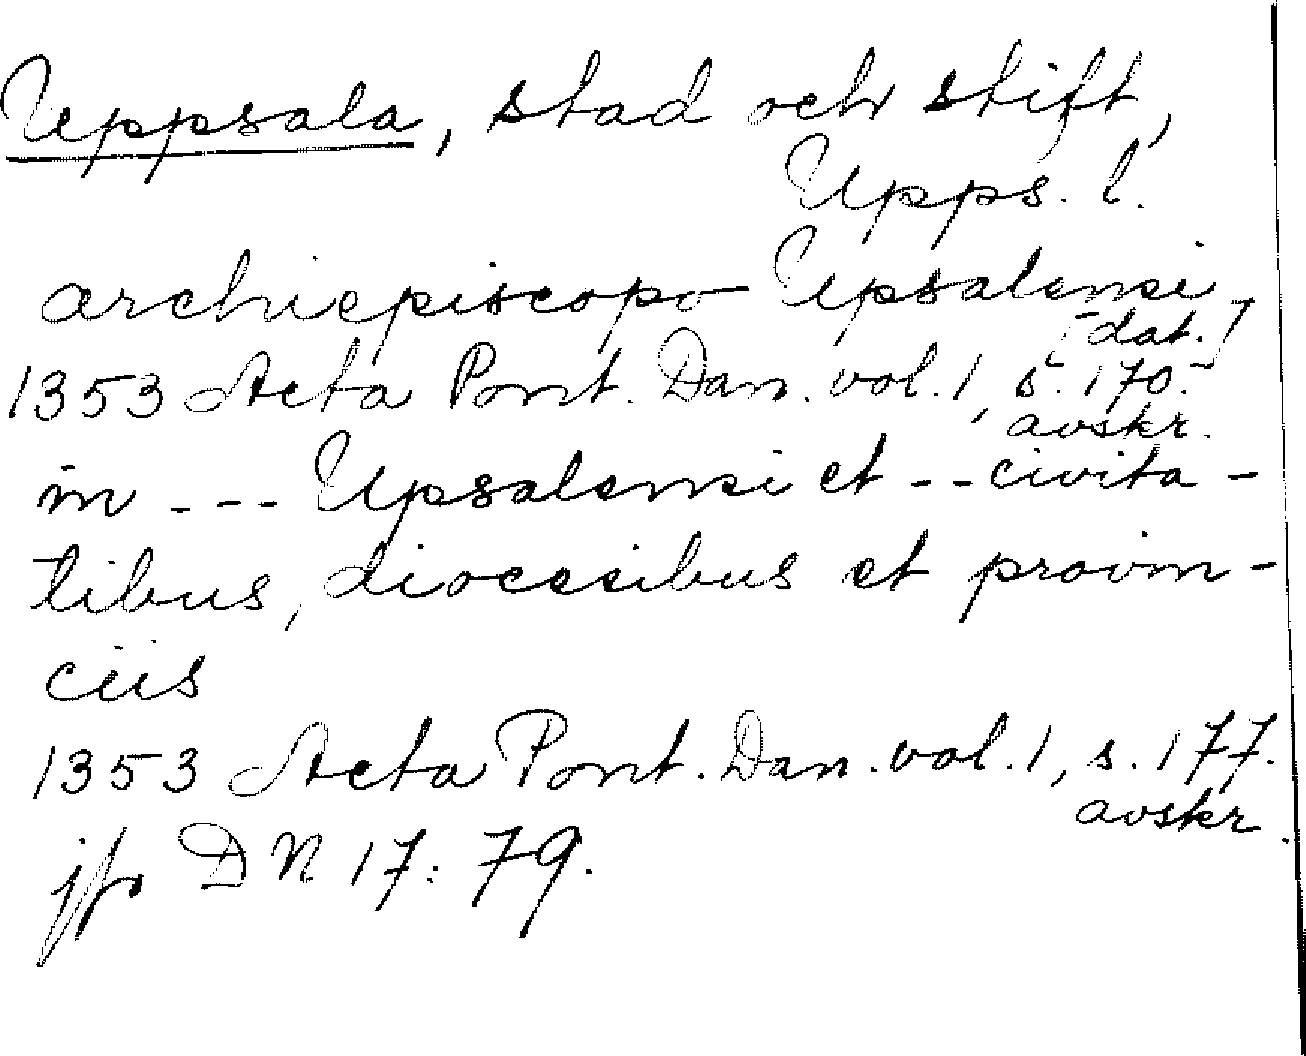 Uppsala, stad och stift,
Upps. l.
archiepiscopo Upsalensi,
[dat.]
1353 Acta Pont. Dan. vol. 1, s. 170.
avskr.
in --- Upsalensi et -- civita-
tibus, diocesibus et provin-
ciis
1353 Acta Pont. Dan. vol. 1, s. 177.
avskr.
jfr DN 17: 79.